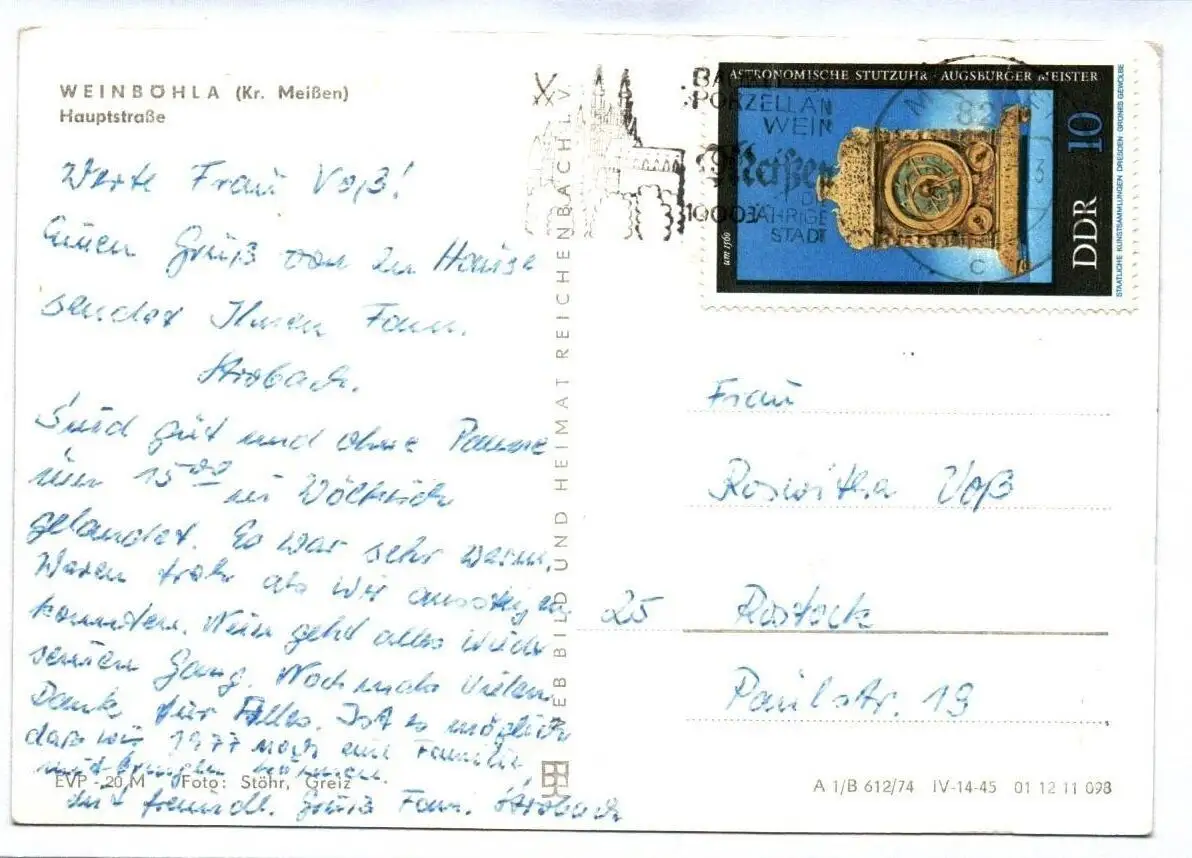 WEINBÖHLA (Kr. Meißen)
Hauptstraße
Werte Frau Voß!
Einen Gruß von zu Hause
sendet Ihnen Fam.
Strobach.
Sind gut und ohne Panne
um 15 00 in
gelandet. Es war sehr warm.
Waren froh als wir aussteigen
konnten. Nun geht alles wieder
seinen Gang. Nochmals vielen
Dank für Alles. Ist es möglich
dass wir 1977 noch eine Familie
mit bringen können.
Mit freundl. Gruß Fam. Strobach
EVP -,20 M Foto: Stöhr, Greiz
BILD UND HEIMAT REICHENBACH I. V.
PORZELLAN
WEIN
Meißen
1000
JÄHRIGE
STADT
ASTRONOMISCHE STUTZUHR · AUGSBURGER MEISTER
um 1560
10
DDR
STAATLICHE KUNSTSAMMLUNGEN DRESDEN GRÜNES GEWÖLBE
Frau
Roswitha Voß
25 Rostock
Paulstr. 19
A 1/B 612/74 IV-14-45 01 12 11 098